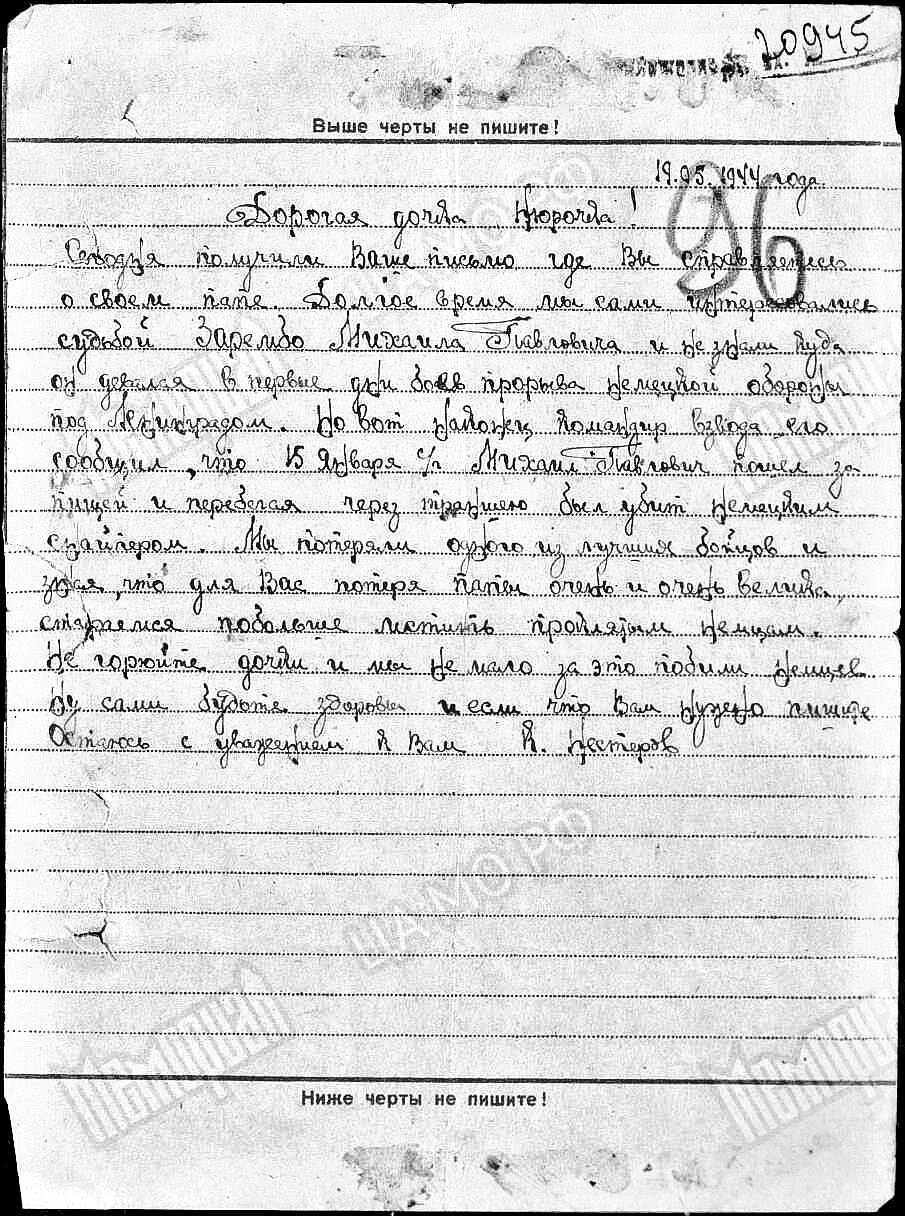 20945
Выше черты не пишите!
19.05.1944 года.
96
Дорогая дочка Нюрочка!
Сегодня получили Ваше письмо где Вы справляетесь
о своем папе. Долгое время мы сами интересовались
судьбой Зарембо Михаила Павловича и не знали куда
он девался в первые дни боев прорыва немецкой обороны
под Ленинградом. Но вот наконец командир взвода его
сообщил, что 15 января с/г Михаил Павлович пошел за
пищей и перебегая через траншею был убит немецким
снайпером. Мы потеряли одного из лучших бойцов и
зная, что для Вас потеря папы очень и очень велика,
стараемся побольше мстить проклятым немцам.
Не горюйте дочки и мы не мало за это побили немцев
Ну сами будьте здоровы и если что Вам нужно пишите
Остаюсь с уважением к Вам К. Нестеров
ЦАМО РФ
ЦАМО РФ
Мемориал
Мемориал
Мемориал
Мемориал
Ниже черты не пишите!